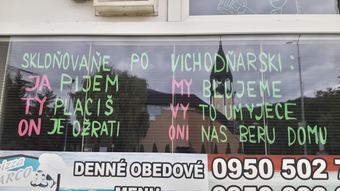 SKLOŇOVAŇE PO VICHODŇARSKI:
JA PIJEM
TY PLACIŠ
ON JE OŽRATI
MY BĽUJEME
VY TO UMYJECE
ONI NAS BERU DOMU
DENNÉ OBEDOVÉ
MENU
0950 502 7